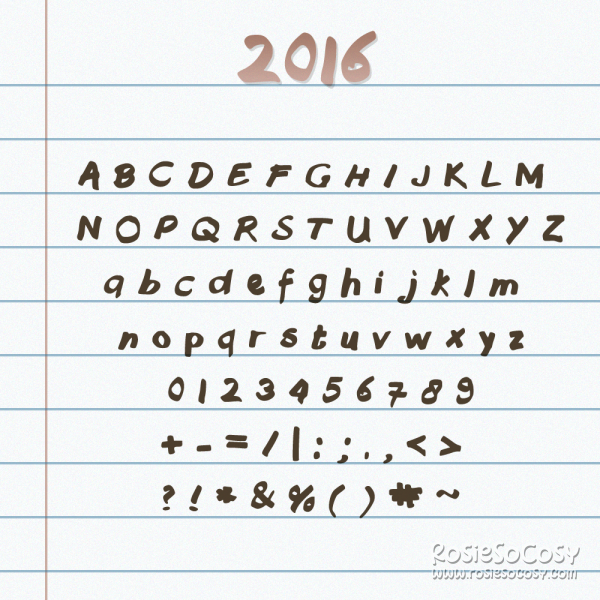 2016
A B C D E F G H I J K L M
N O P Q R S T U V W X Y Z
a b c d e f g h i j k l m
n o p q r s t u v w x y z
0 1 2 3 4 5 6 7 8 9
+ - = / | : ; . , < >
? ! * & % ( ) # ~
RosieSoCosy
www.rosiesocosy.com